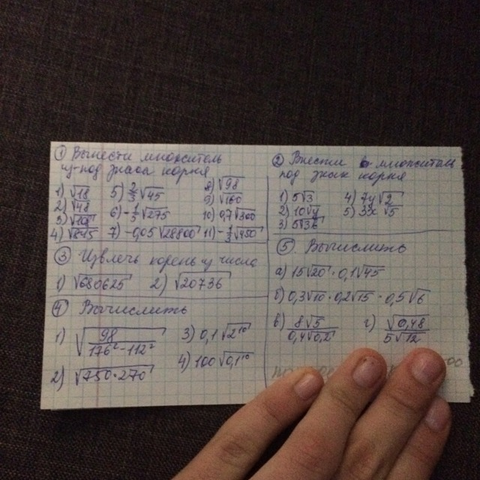 ① Вынести множитель
из-под знака корня
1) √18 5) 2/3 √45 8) √98
2) √48 9) √160
3) 6) -1/5 √275 10) 0,7√300
4) 7) -0,05√28800 11)
② Внести множитель
под знак корня
1) 5√3 4) 7y√2
2) 10√y 5) 3x√5
3) 5√36
③ Извлечь корень из числа
1) √680625 2) √20736
④ Вычислить
1) √98/(176²-112²) 3) 0,1√2¹⁰
2) √750·270 4) 100√0,1¹⁰
⑤ Вычислить
а) 15√20 · 0,1√45
б) 0,3√10 · 0,2√15 · 0,5√6
в) 8√5/0,4√0,2 г) √0,48/5√12